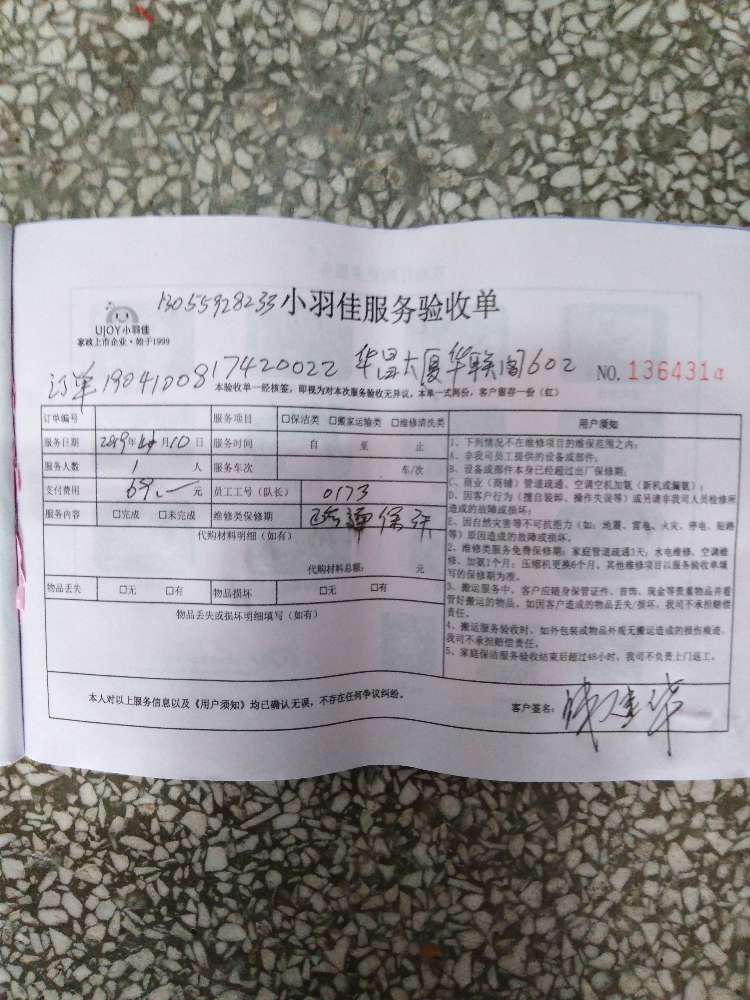 13055928233 小羽佳服务验收单
UJOY小羽佳
家政上市企业·始于1999
订单190410081742002​2 华昌大厦华联阁602 NO. 1364314
本验收单一经核签，即视为对本次服务验收无异议，本单一式两份，客户留存一份（红）
订单编号 服务项目 □保洁类 □搬家运输类 □维修清洗类
服务日期 2019年4月10日 服务时间 自 至 止
服务人数 1 人 服务车次 车/次
支付费用 69.— 元 员工工号（队长） 0173
服务内容 □完成 □未完成 维修类保修期
代购材料明细（如有）
代购材料总额： 元
物品丢失 □无 □有 物品损坏 □无 □有
物品丢失或损坏明细填写（如有）
用户须知
1、下列情况不在维修项目的维保范围之内：
A、非我司员工提供的设备或部件；
B、设备或部件本身已经超过出厂保修期；
C、商业（商铺）管道疏通、空调空机加氨（新机或漏氨）；
D、因客户行为（擅自装卸、操作失误等）或另请非我司人员检修所
造成的故障或损坏；
E、因自然灾害等不可抗拒力（如：地震、雷电、火灾、停电、短路
等）原因造成的故障或损坏。
2、维修类服务免费保修期：家庭管道疏通3天；水电维修、空调维
修、加氨1个月；压缩机更换6个月，其他维修项目以服务验收单填
写的保修期为准。
3、搬运服务中，客户应随身保管证件、首饰、现金等贵重物品并看
管好搬运的物品，如因客户造成的物品丢失/损坏，我司不承担赔偿
责任。
4、搬运服务验收时，如外包装或物品外观无搬运造成的损伤痕迹，
我司不承担赔偿责任。
5、家庭保洁服务验收结束后超过48小时，我司不负责上门返工。
本人对以上服务信息以及《用户须知》均已确认无误，不存在任何争议纠纷。
客户签名：